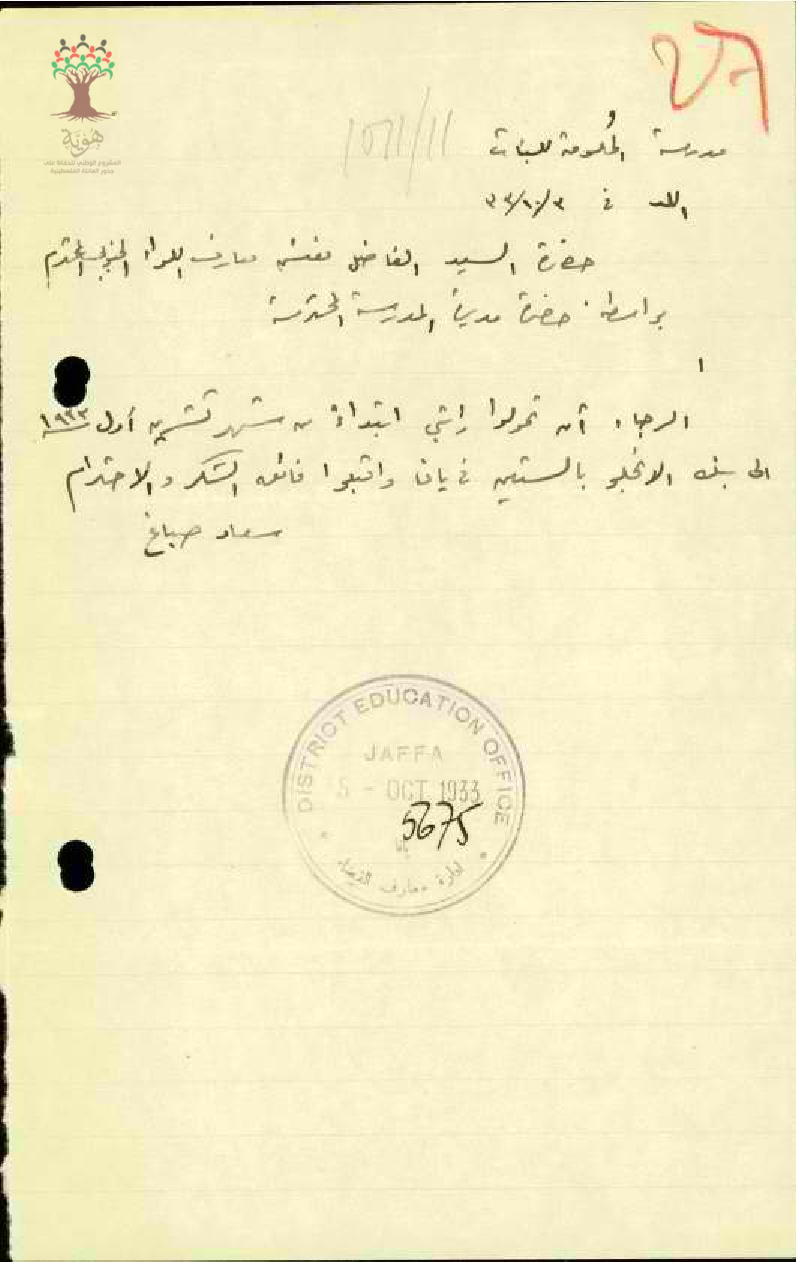 هوية
المشروع الوطني للحفاظ على
جذور العائلة الفلسطينية
1511/11
مدرسة الحكومة للبنات
اللد في ٣/١٠/٣٣
حضرة السيد الفاضل مفتش معارف اللواء الجنوبي المحترم
بواسطة حضرة مديرة المدرسة المحترمة
الرجاء أن تحولوا راتبي ابتداءً من شهر تشرين أول ١٩٣٣
الى بنك الانجلو بالستين في يافا واقبلوا فائق الشكر والاحترام
سعاد صباغ
DISTRICT EDUCATION OFFICE
JAFFA
5 - OCT 1933
5675
يافا
ادارة معارف القضاء